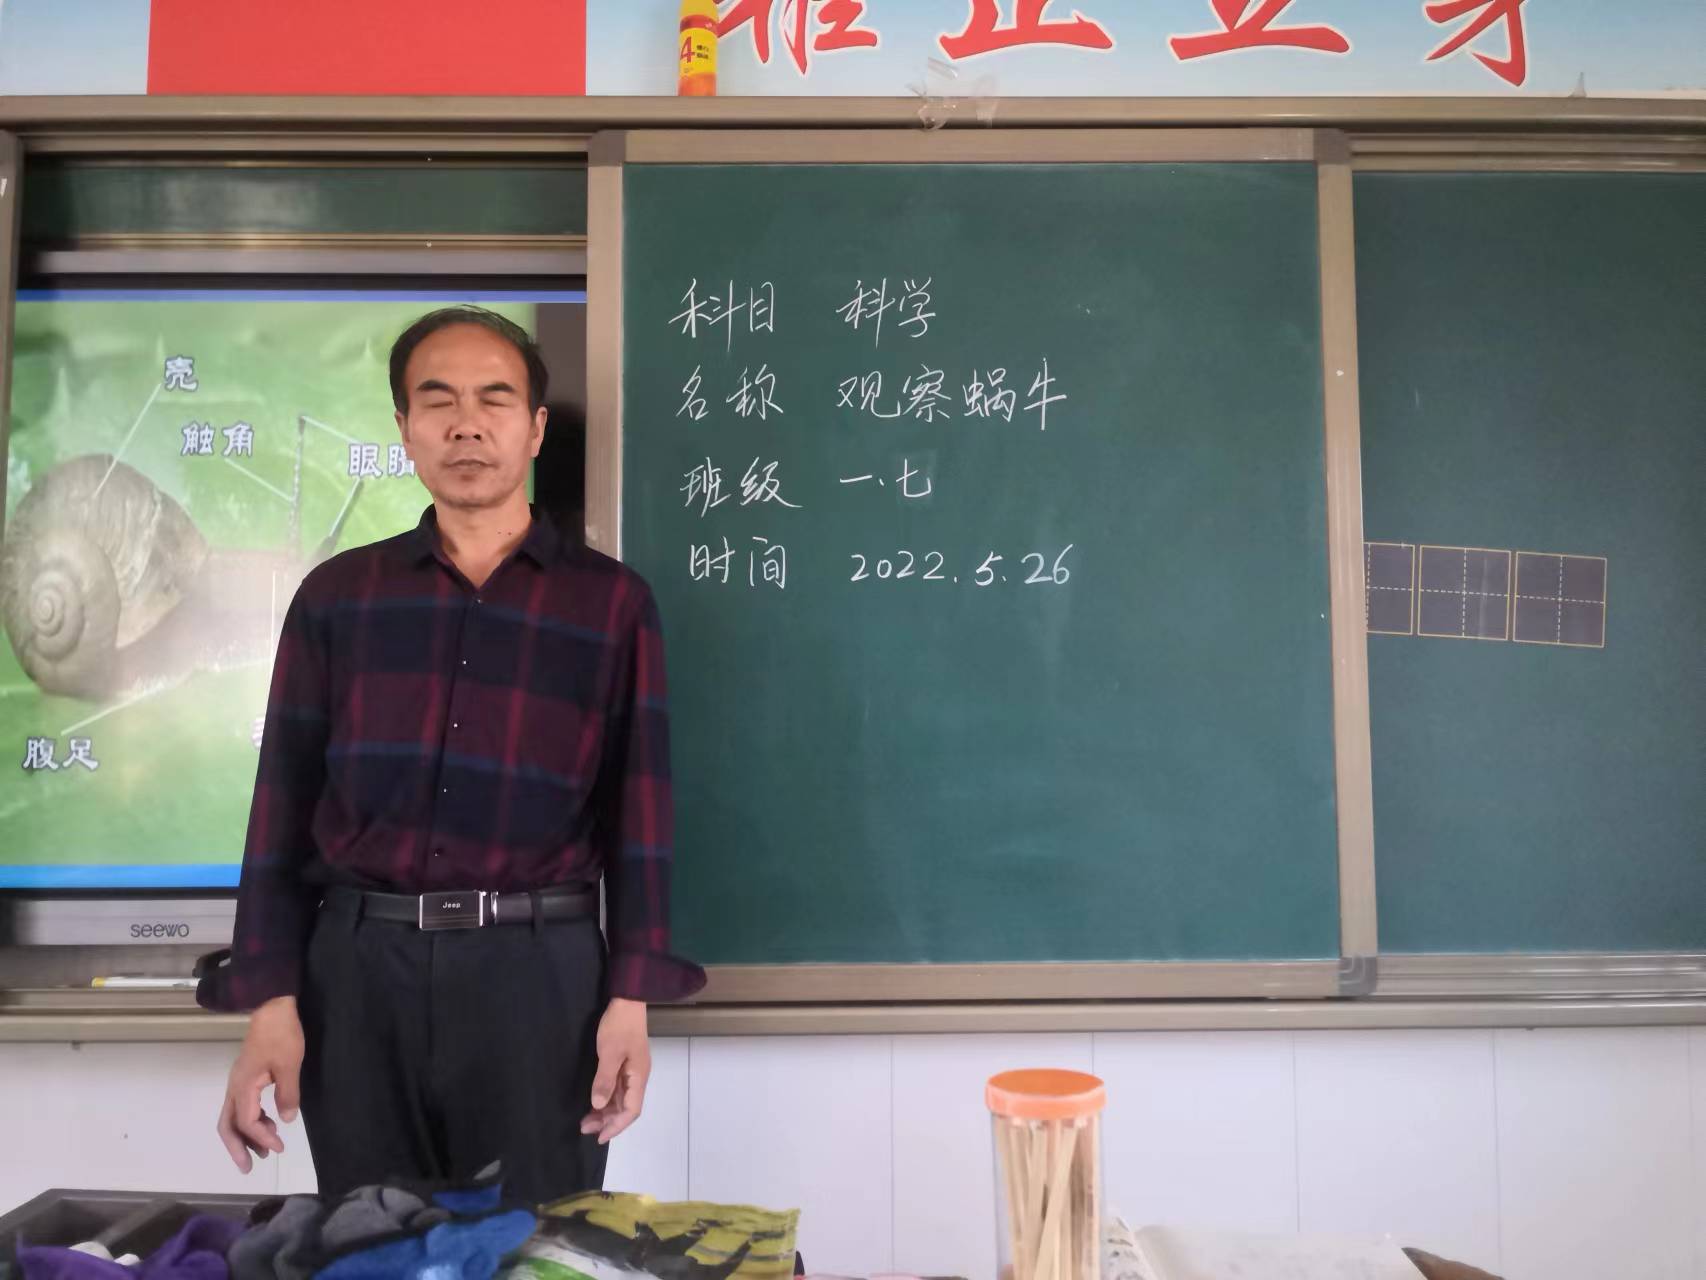 正立身
4
壳
触角
眼睛
腹足
seewo
Jeep
科目 科学
名称 观察蜗牛
班级 一.七
时间 2022.5.26